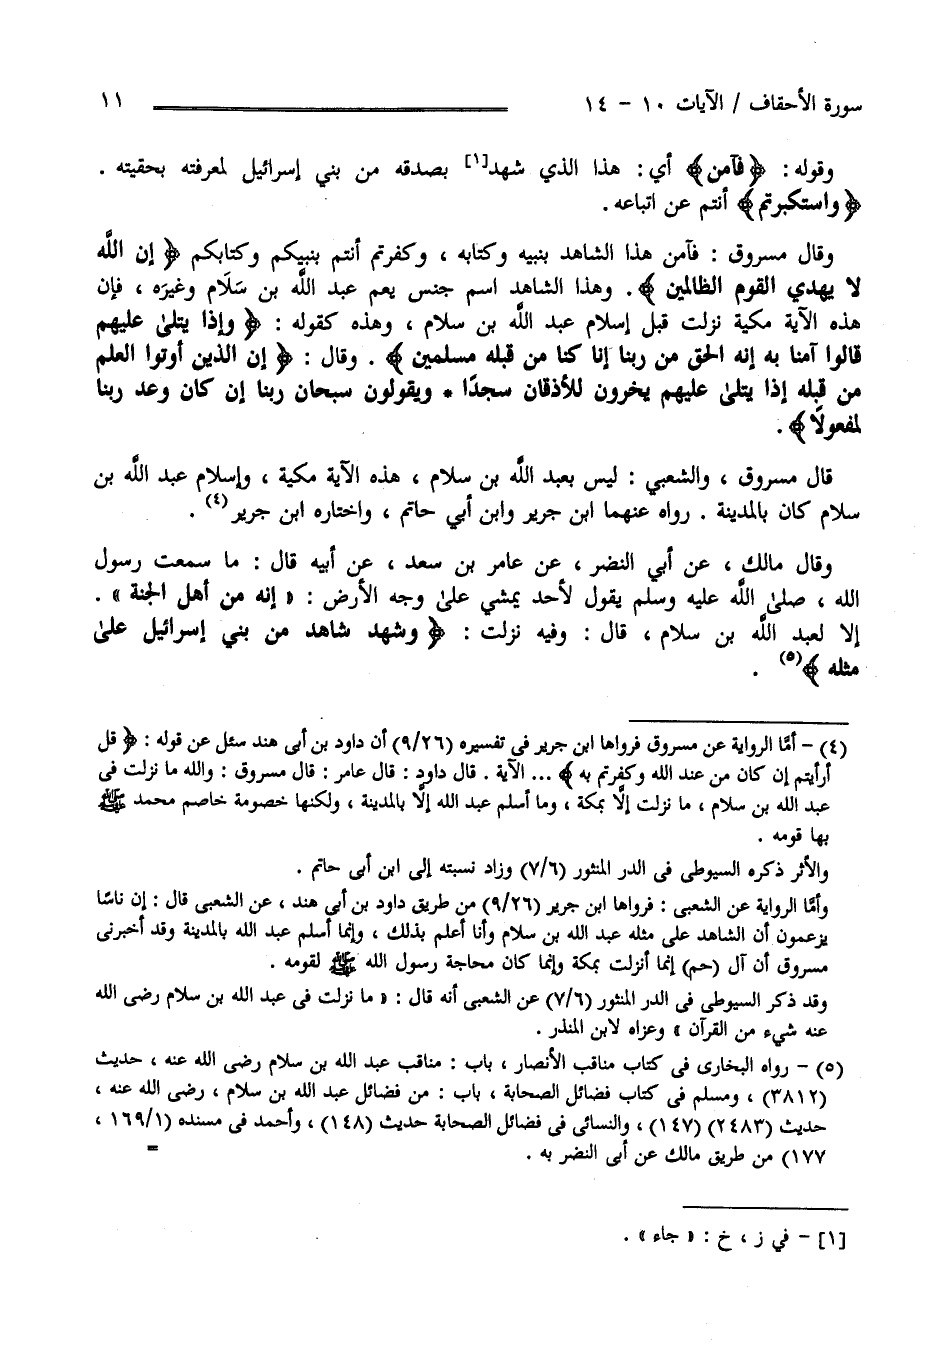 سورة الأحقاف / الآيات ١٠ - ١٤ ١١
وقوله : ﴿ فآمن ﴾ أي : هذا الذي شهد[١] بصدقه من بني إسرائيل لمعرفته بحقيته .
﴿ واستكبرتم ﴾ أنتم عن اتباعه .
وقال مسروق : فآمن هذا الشاهد بنبيه وكتابه ، وكفرتم أنتم بنبيكم وكتابكم ﴿ إن اللَّه
لا يهدي القوم الظالمين ﴾ . وهذا الشاهد اسم جنس يعم عبد اللَّه بن سَلَام وغيرَه ، فإن
هذه الآية مكية نزلت قبل إسلام عبد اللَّه بن سلام ، وهذه كقوله : ﴿ وإذا يتلىٰ عليهم
قالوا آمنا به إنه الحق من ربنا إنا كنا من قبله مسلمين ﴾ . وقال : ﴿ إن الذين أوتوا العلم
من قبله إذا يتلىٰ عليهم يخرون للأذقان سجدًا * ويقولون سبحان ربنا إن كان وعد ربنا
لمفعولًا ﴾ .
قال مسروق ، والشعبي : ليس بعبد اللَّه بن سلام ، هذه الآية مكية ، وإسلام عبد اللَّه بن
سلام كان بالمدينة . رواه عنهما ابن جرير وابن أبي حاتم ، واختاره ابن جرير(٤) .
وقال مالك ، عن أبي النضر ، عن عامر بن سعد ، عن أبيه قال : ما سمعت رسول
الله ، صلىٰ اللَّه عليه وسلم يقول لأحد يمشي علىٰ وجه الأرض : « إنه من أهل الجنة » .
إلا لعبد اللَّه بن سلام ، قال : وفيه نزلت : ﴿ وشهد شاهد من بني إسرائيل علىٰ
مثله ﴾(٥) .
(٤) - أمَّا الرواية عن مسروق فرواها ابن جرير فى تفسيره (٩/٢٦) أن داود بن أبى هند سئل عن قوله : ﴿ قل
أرأيتم إن كان من عند الله وكفرتم به ﴾ ... الآية . قال داود : قال عامر : قال مسروق : والله ما نزلت فى
عبد الله بن سلام ، ما نزلت إلَّا بمكة ، وما أسلم عبد الله إلَّا بالمدينة ، ولكنها خصومة خاصم محمد ﷺ
بها قومه .
والأثر ذكره السيوطى فى الدر المنثور (٧/٦) وزاد نسبته إلى ابن أبى حاتم .
وأمَّا الرواية عن الشعبى : فرواها ابن جرير (٩/٢٦) من طريق داود بن أبى هند ، عن الشعبى قال : إن ناسًا
يزعمون أن الشاهد على مثله عبد الله بن سلام وأنا أعلم بذلك ، وإنما أسلم عبد الله بالمدينة وقد أخبرنى
مسروق أن آل (حم) إنما أنزلت بمكة وإنما كان محاجة رسول الله ﷺ لقومه .
وقد ذكر السيوطى فى الدر المنثور (٧/٦) عن الشعبى أنه قال : « ما نزلت فى عبد الله بن سلام رضى الله
عنه شىء من القرآن » وعزاه لابن المنذر .
(٥) - رواه البخارى فى كتاب مناقب الأنصار ، باب : مناقب عبد الله بن سلام رضى الله عنه ، حديث
(٣٨١٢) ، ومسلم فى كتاب فضائل الصحابة ، باب : من فضائل عبد الله بن سلام ، رضى الله عنه ،
حديث (٢٤٨٣) (١٤٧) ، والنسائى فى فضائل الصحابة حديث (١٤٨) ، وأحمد فى مسنده (١٦٩/١ ،
١٧٧) من طريق مالك عن أبى النضر به . =
[١] - في ز ، خ : « جاء » .